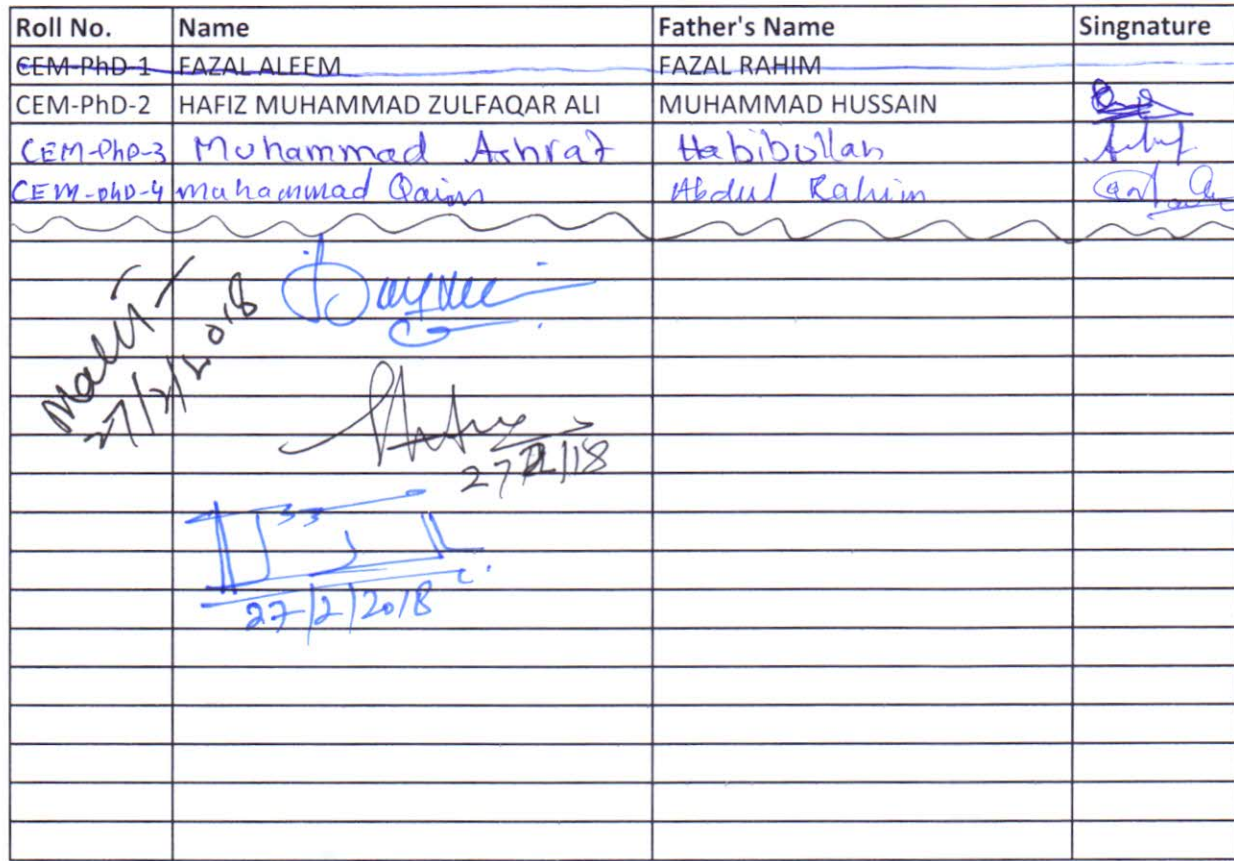 Roll No. Name Father's Name Singnature
CEM-PhD-1 FAZAL ALEEM FAZAL RAHIM
CEM-PhD-2 HAFIZ MUHAMMAD ZULFAQAR ALI MUHAMMAD HUSSAIN
CEM-PhD-3 Muhammad Ashraf Habibullah
CEM-PhD-4 Muhammad Qaim Abdul Rahim
27/2/2018
27/2/18
27/2/2018